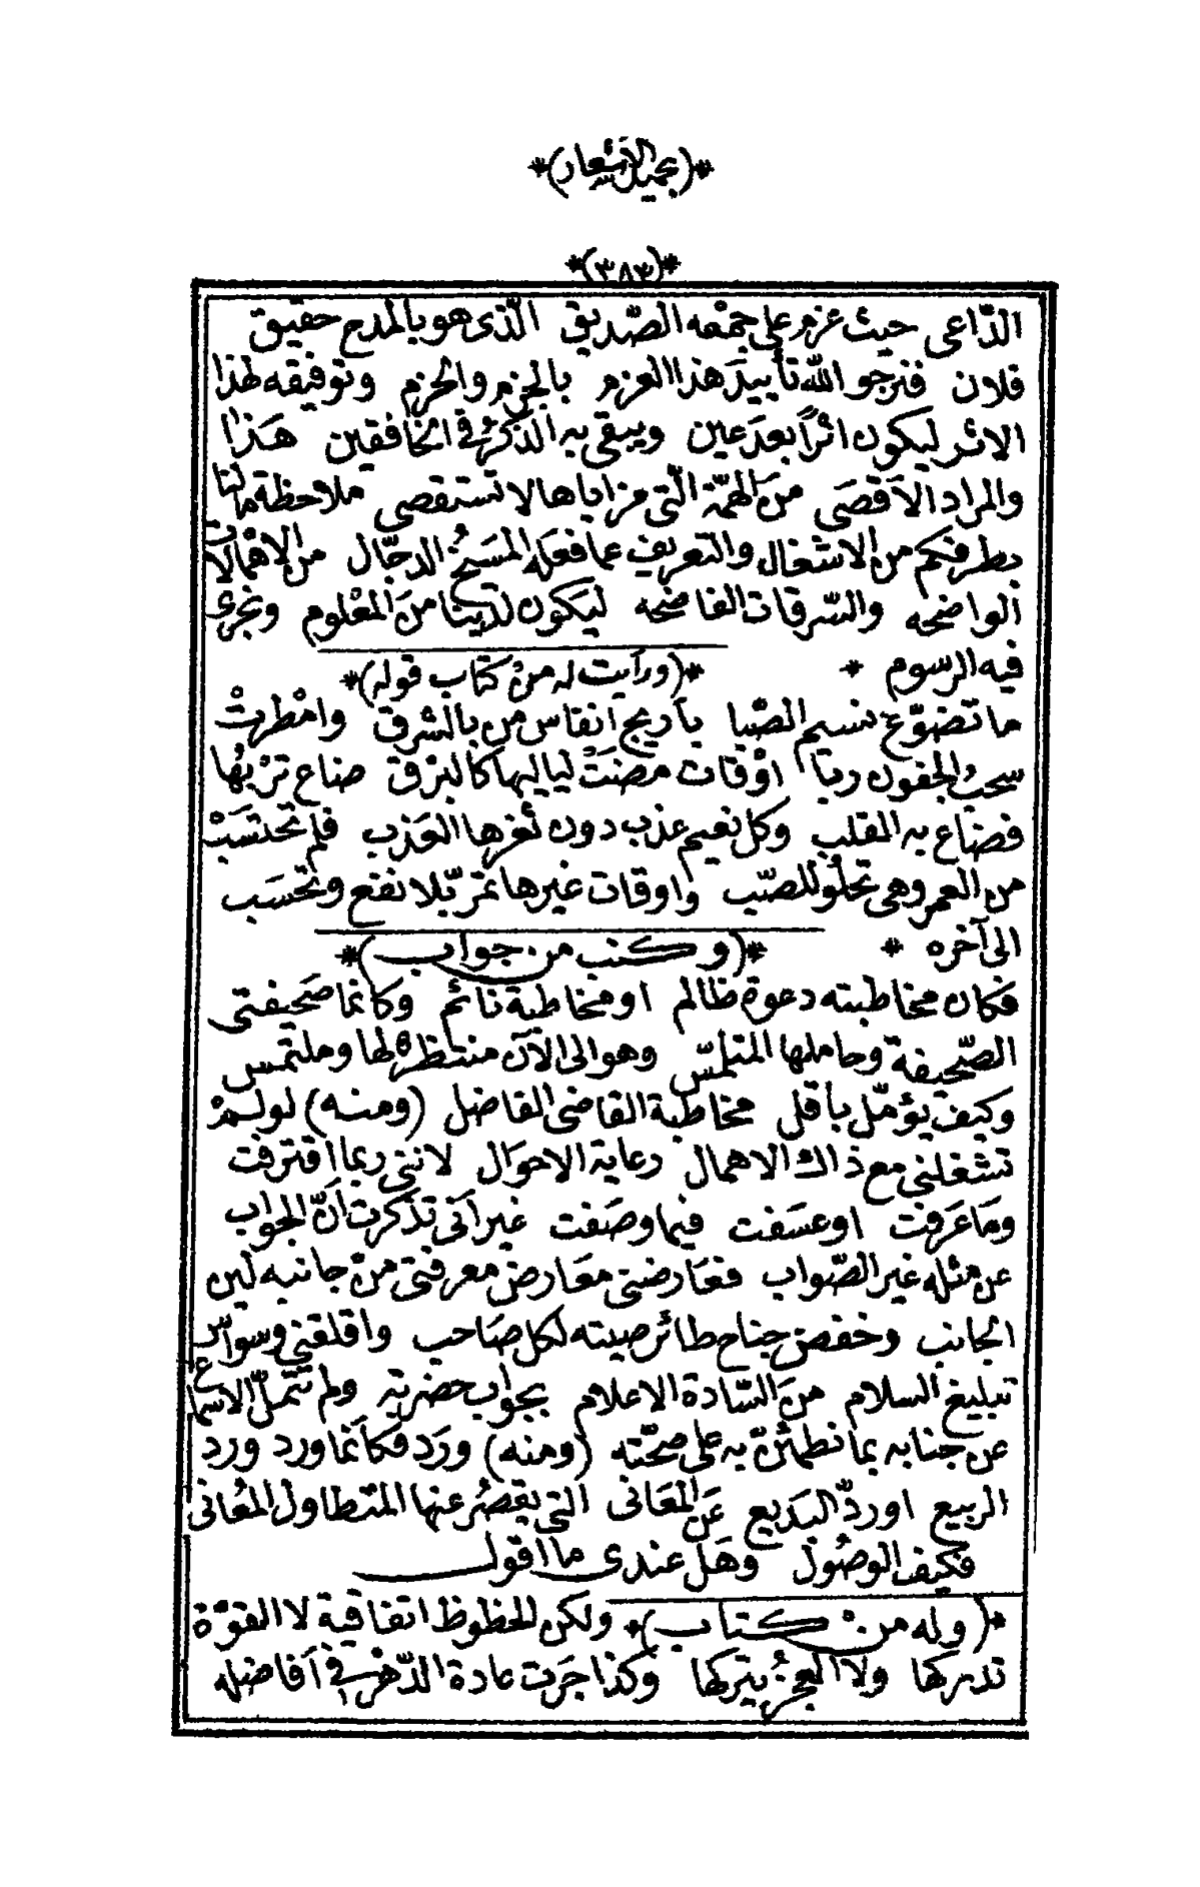 *(بجميل الأشعار)*
*(٣٨٣)*
الدّاعى حيث عزم على جمْعه الصّديق الّذى هو بالمدح حقيق
فلان فنرجو اللّه تأييدَ هذا العزم بالجزم والحزم وتوفيقه لهذا
الاثر ليكون اثراً بعدَ عين ويبقى به الذكرُ فى الخافقين هَذا
والمراد الاَقصَى منَ الهمّة الّتى مزاياها لا تستقصى ملاحظة مالنا
بطرفكم من الاشغال والتعريف عما فعَله المسَيخُ الدجّال من الاهمالات
الواضحه والسّرقات الفاضحه ليَكون لدَينا منَ المعْلوم ونجرى
فيه الرسوم *
*(ورأيت له منْ كتاب قوله)*
ما تضوّع نسيم الصّبا بأريج اَنفاس من بالشرق وامْطرتْ
سحبُ الجفون ربَا اوْقات مضَتْ لياليها كالبَرْق ضاع ترْبُها
فضاع به القلب وكل نعيم عذب دون ثغرها العَذب فلم تحتسَبْ
من العمر وهى تحلُو للصّب واوقات غيرها تمرّ بلا نفع وتحسَب
الى آخره *
*(وكتب من جواب)*
فكان مخاطبته دعوة ظالم او مخاطبة نائم وكانما صَحيفتى
الصّحيفة وحاملها المتلمّس وهو الى الآن منتظرٌ لها وملتمس
وكيف يؤمّل بأقل مخاطبة القاضى الفاضل (ومنه) لو لمْ
تشغلنى مع ذاك الاهمال رعاية الاحوَال لاننى ربما اقترفت
ومَا عَرفت او عسَفت فيما وصَفت غير اَنى تذكرت اَنّ الجواب
عن مثله غير الصّواب فعَارضنى معَارض معرفتى منْ جانبه لين
الجانب وخفض جناح طائر صيته لكل صَاحب واقلقنى وسواس
تبليغ السلام منَ السّادة الاعلام بجواب حضرته ولم تتملّ الاسماع
عن جنابه بما نطمئنّ به على صحّته (ومنه) ورَد فكاَنما ورد ورد
الربيع اوردّ البَديع عَن المعَانى التى يقصُر عنها المتطاول المعُانى
فكيف الوصُول وهَل عندى ما اقول
*(وله من كتاب)* ولكن الحظوظ اتفاقية لا القوّة
تدركها ولا العجزُ يتركها وكذا جَرت عادة الدّهر فى اَفاضله